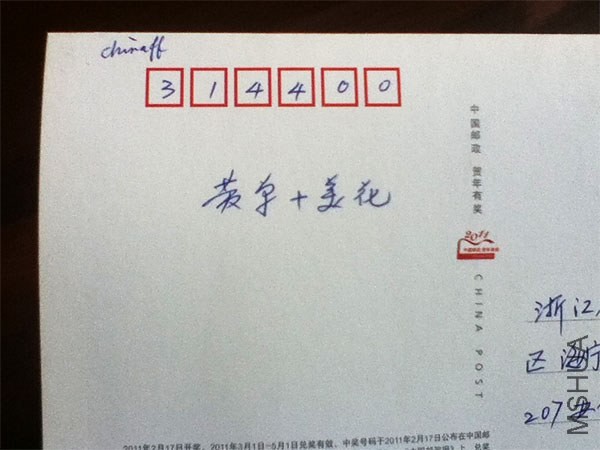 chinaff
314400
黄草+美花
中国邮政 贺年有奖
2011
CHINA POST
浙江
区海宁
207
MSHUA
2011年2月17日开奖，2011年3月1日-5月1日兑奖有效。中奖号码于2011年2月17日公布在中国邮